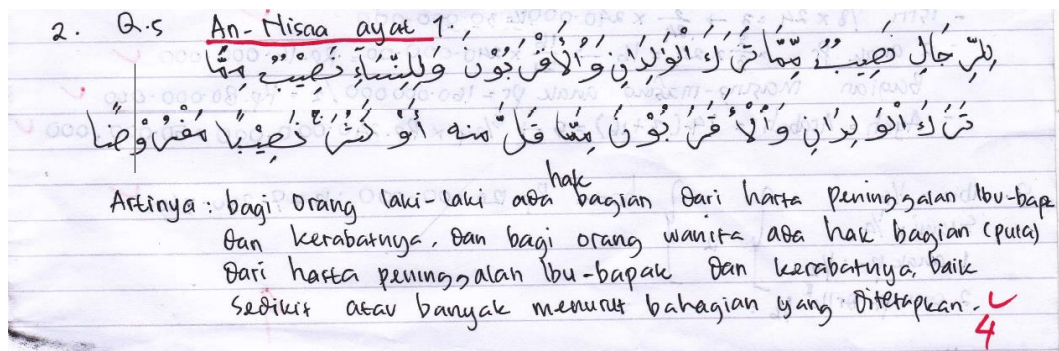 2. Q.S An-Nisaa ayat 7.
لِلرِّجَالِ نَصِيْبٌ مِّمَّا تَرَكَ الْوٰلِدَانِ وَالْأَقْرَبُوْنَ وَلِلنِّسَاءِ نَصِيْبٌ مِمَّا
تَرَكَ الْوٰلِدَانِ وَالْأَقْرَبُوْنَ مِمَّا قَلَّ منه أَوْ كَثُرَ نَصِيْبًا مَفْرُوْضًا
hak
Artinya : bagi orang laki-laki ada bagian dari harta peninggalan Ibu-bapa
dan kerabatnya, dan bagi orang wanita ada hak bagian (pula)
dari harta peninggalan Ibu-bapak dan kerabatnya, baik
sedikit atau banyak menurut bahagian yang ditetapkan.
4